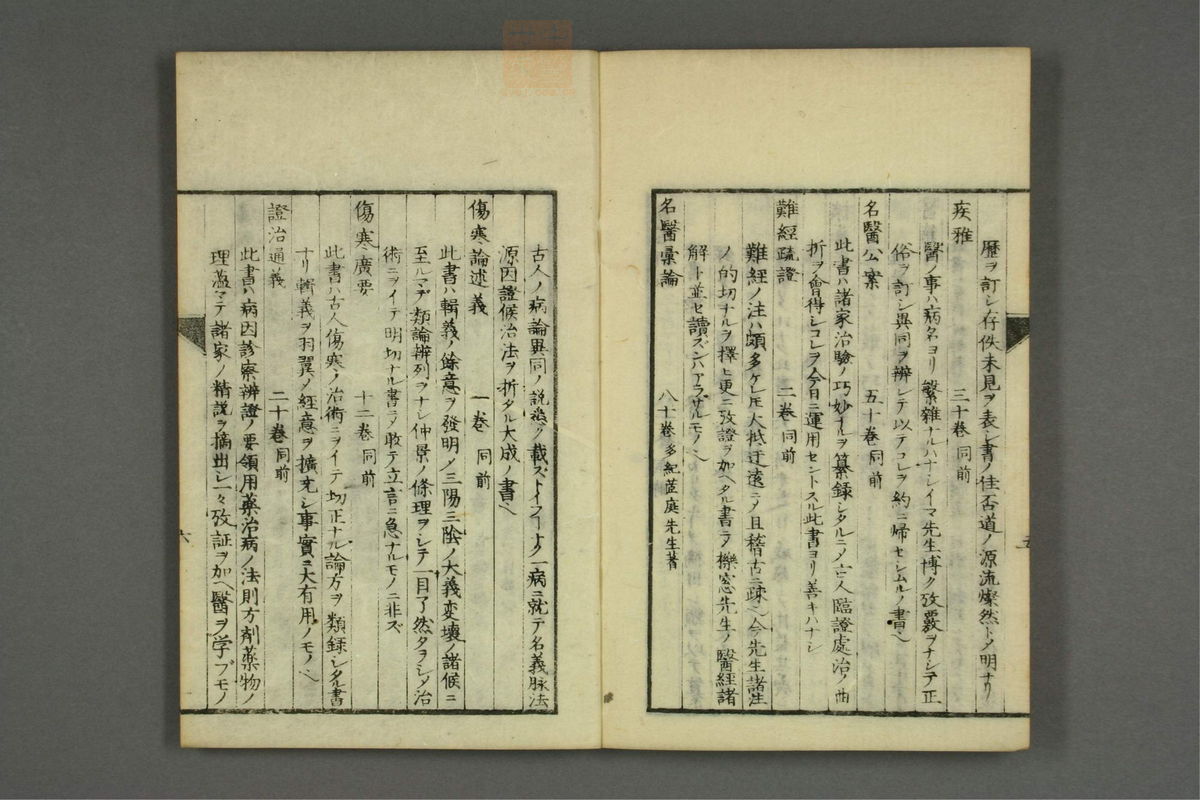 歴ヲ訂シ存佚未見ヲ表シ書ノ佳否道ノ源流燦然トノ明ナリ
疾雅　三十巻　同前
醫ノ事ハ病名ヨリ繁雜ナルハナシイマ先生博ク攷覈ヲナシテ正
俗ヲ訂シ異同ヲ辨シテ以テコレヲ約ニ帰セシムルノ書ヘ
名醫公案　五十巻　同前
此書ハ諸家治驗ノ巧妙ナルヲ纂録シタルニノ亡人臨證處治ノ曲
折ヲ會得シコレヲ今日ニ運用セントスル此書ヨリ善キハナシ
難經疏證　二巻　同前
難經ノ注ハ頗多ケレ𪜈大抵迂遠ニノ且稽古ニ疎ヘ今先生諸注
ノ的切ナルヲ擇ヒ更ニ攷證ヲ加ヘタル書ラ櫟窓先生ノ醫經諸
解ト並セ讀ズンハアラザルモノヘ
名醫彙論　八十巻　多紀茝庭先生著
古人ノ病論異同ノ説悉ク載ズトイフヿナク一病ニ就テ名義脉法
源因證候治法ヲ折タル大成ノ書ヘ
傷寒論述義　一巻　同前
此書ハ輯義ノ餘意ヲ發明ノ三陽三陰ノ大義変壊ノ諸候ニ
至ルマデ類論辨列ヲナシ仲景ノ條理ヲシテ一目了然タラシメ治
術ニヲイテ明切ナル書ラ敢テ立言ニ急ナルモノニ非ズ
傷寒廣要　十二巻　同前
此書ハ古人傷寒ノ治術ニヲイテ切正ナル論方ヲ類録シタル書
ナリ輯義ヲ羽翼ノ經意ヲ擴充シ事實ニ大有用ノモノヘ
證治通義　二十巻　同前
此書ハ病因診察辨證ノ要領用藥治病ノ法則方剤薬物ノ
理蘊マテ諸家ノ精説ヲ摘出シ一々攷証ヲ加ヘ醫ヲ学ブモノ
五
六